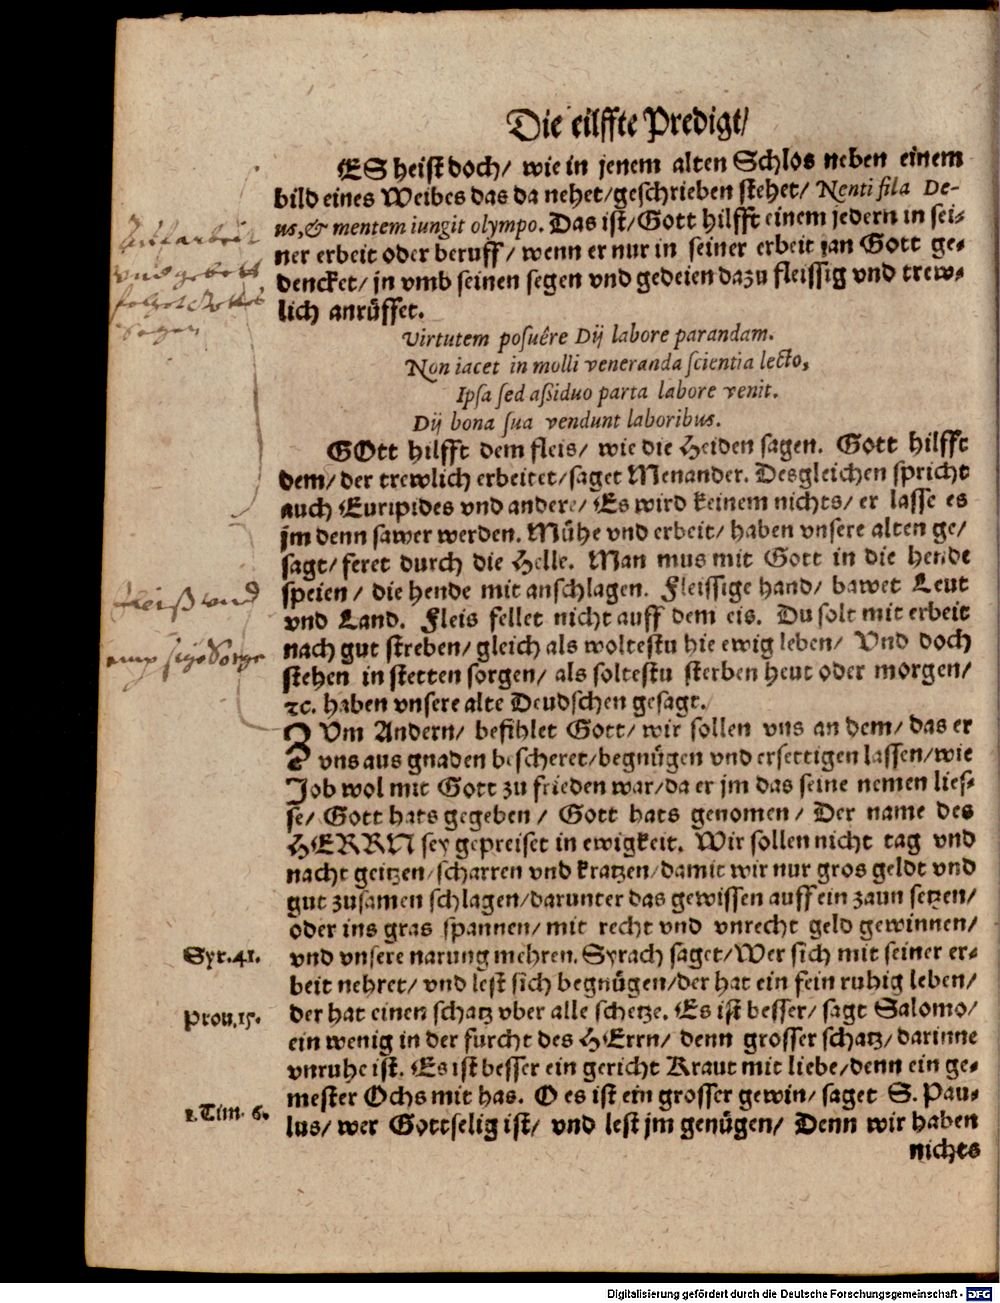 Die eilffte Predigt/
ES heist doch/ wie in jenem alten Schlos neben einem
bild eines Weibes das da nehet/geschrieben stehet/ Nenti fila De-
us,& mentem iungit olympo. Das ist/Gott hilfft einem jedern in sei-
ner erbeit oder beruff/ wenn er nur in seiner erbeit jan Gott ge-
dencket/ jn vmb seinen segen vnd gedeien dazu fleissig vnd trew-
lich anrüffet.
Virtutem posuêre Dij labore parandam.
Non iacet in molli veneranda scientia lecto,
Ipsa sed aßiduo parta labore venit.
Dij bona sua vendunt laboribus.
GOtt hilfft dem fleis/ wie die Heiden sagen. Gott hilfft
dem/ der trewlich erbeitet/saget Menander. Desgleichen spricht
auch Euripides vnd andere/ Es wird keinem nichts/ er lasse es
jm denn sawer werden. Mühe vnd erbeit/ haben vnsere alten ge/
sagt/ feret durch die Helle. Man mus mit Gott in die hende
speien/ die hende mit anschlagen. Fleissige hand/ bawet Leut
vnd Land. Fleis fellet nicht auff dem eis. Du solt mit erbeit
nach gut streben/ gleich als woltestu hie ewig leben/ Vnd doch
stehen in stetten sorgen/ als soltestu sterben heut oder morgen/
ꝛc. haben vnsere alte Deudschen gesagt.
ZVm Andern/ befihlet Gott/ wir sollen vns an dem/ das er
vns aus gnaden bescheret/begnügen vnd ersettigen lassen/wie
Job wol mit Gott zu frieden war/da er jm das seine nemen lies-
se/ Gott hats gegeben/ Gott hats genomen/ Der name des
HERRN sey gepreiset in ewigkeit. Wir sollen nicht tag vnd
nacht geitzen/scharren vnd kratzen/damit wir nur gros geldt vnd
gut zusamen schlagen/darunter das gewissen auff ein zaun setzen/
oder ins gras spannen/ mit recht vnd vnrecht geld gewinnen/
vnd vnsere narung mehren. Syrach saget/Wer sich mit seiner er-
beit nehret/ vnd lest sich begnügen/der hat ein fein ruhig leben/
der hat einen schatz vber alle schetze. Es ist besser/ sagt Salomo/
ein wenig in der furcht des HErrn/ denn grosser schatz/ darinne
vnruhe ist. Es ist besser ein gericht Kraut mit liebe/denn ein ge-
mester Ochs mit has. O es ist ein grosser gewin/ saget S. Pau-
lus/ wer Gottselig ist/ vnd lest jm genügen/ Denn wir haben
nichts
Auf arbeit
vnd gebett
folget Gottes
Segen
Fleiß vnd
Sorge
Syr.41.
Prou.15.
1.Tim. 6.
Digitalisierung gefördert durch die Deutsche Forschungsgemeinschaft - DFG